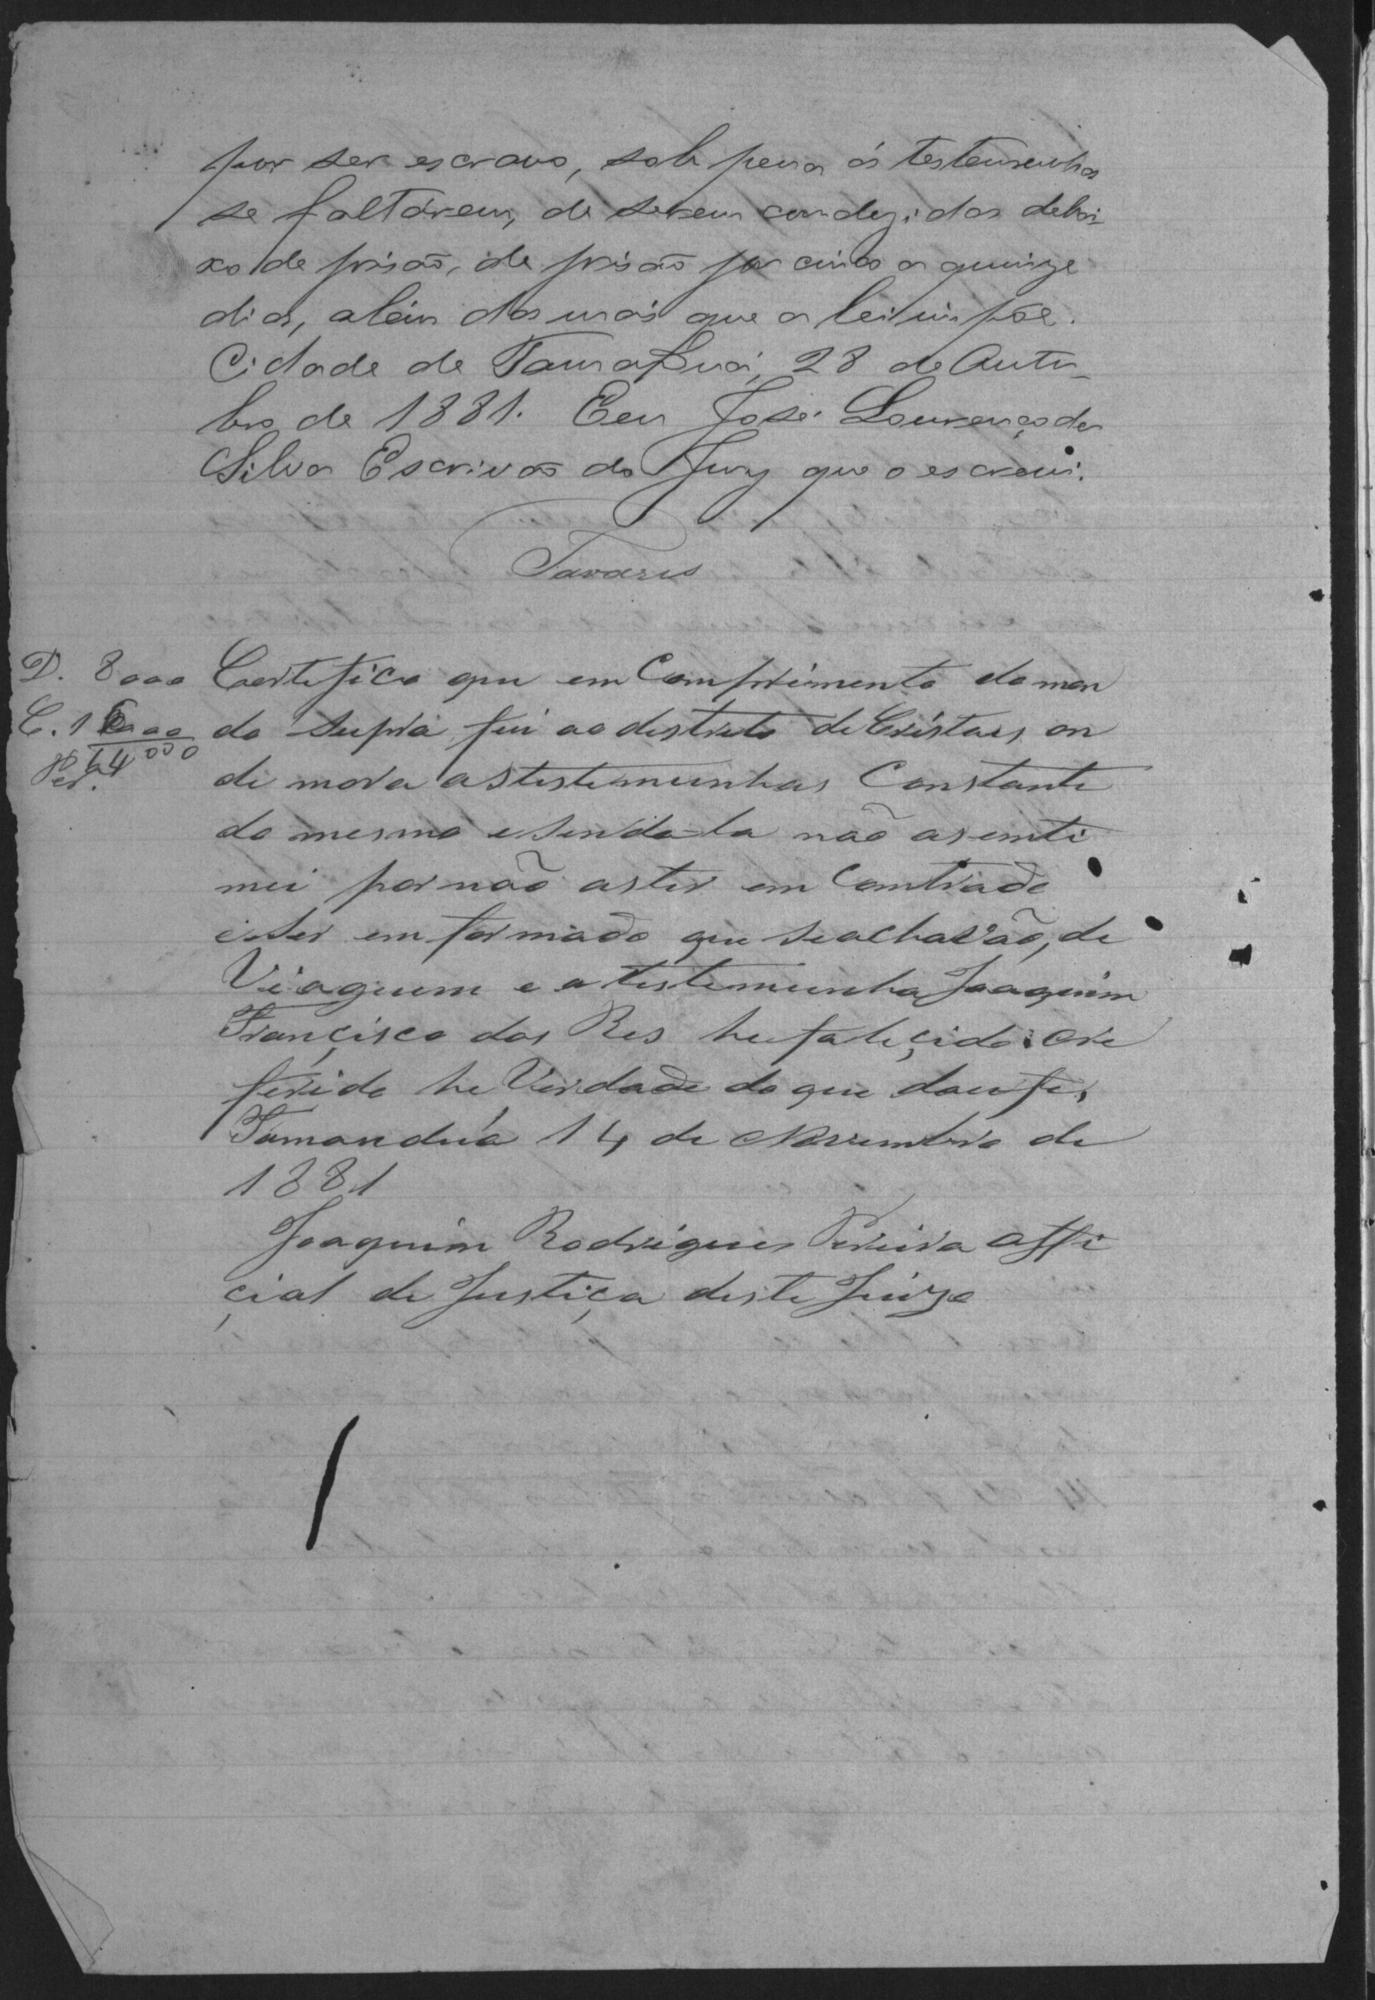 por ser escravo, sob pena ás testemunhas
se faltárem, de serem conduzidas debai-
xo de prisão, de prisão por cinco a quinze
dias, alèm das mais que a lei impõe.
Cidade de Tamanduá, 28 de Outu-
bro de 1881. Eeu José Lourenço da
Silva Escrivão do Jury que o escrevi.
Tavares
D. 8000
C. 16000
24000
Certefico que em Comprimento do man
do supra fui ao destrito de Cristais, on
de mora as testemunhas Constante
do mesmo e sendo la não as emti
mei por não aster em Contrado
e ser em formado que se achavão, de
Viaguem e a testemunha Joaquim
Françisco dos Reis he faleçido: ore
ferido he Verdade do que dou fe,
Tamandúa 14 de Novembro de
1881
Joaquim Rodrigues Pereira offi
çial de Justiça deste Juizo